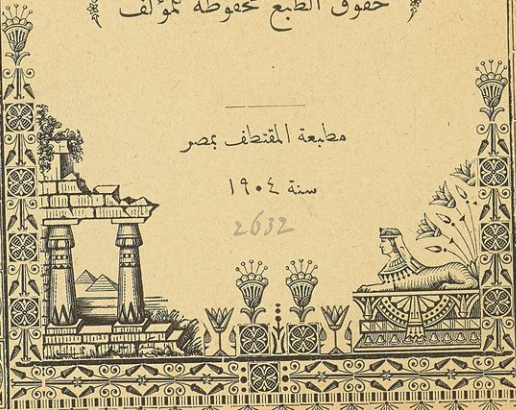 حقوق الطبع محفوظة للمؤلف
مطبعة المقتطف بمصر
سنة ١٩٠٤
2632